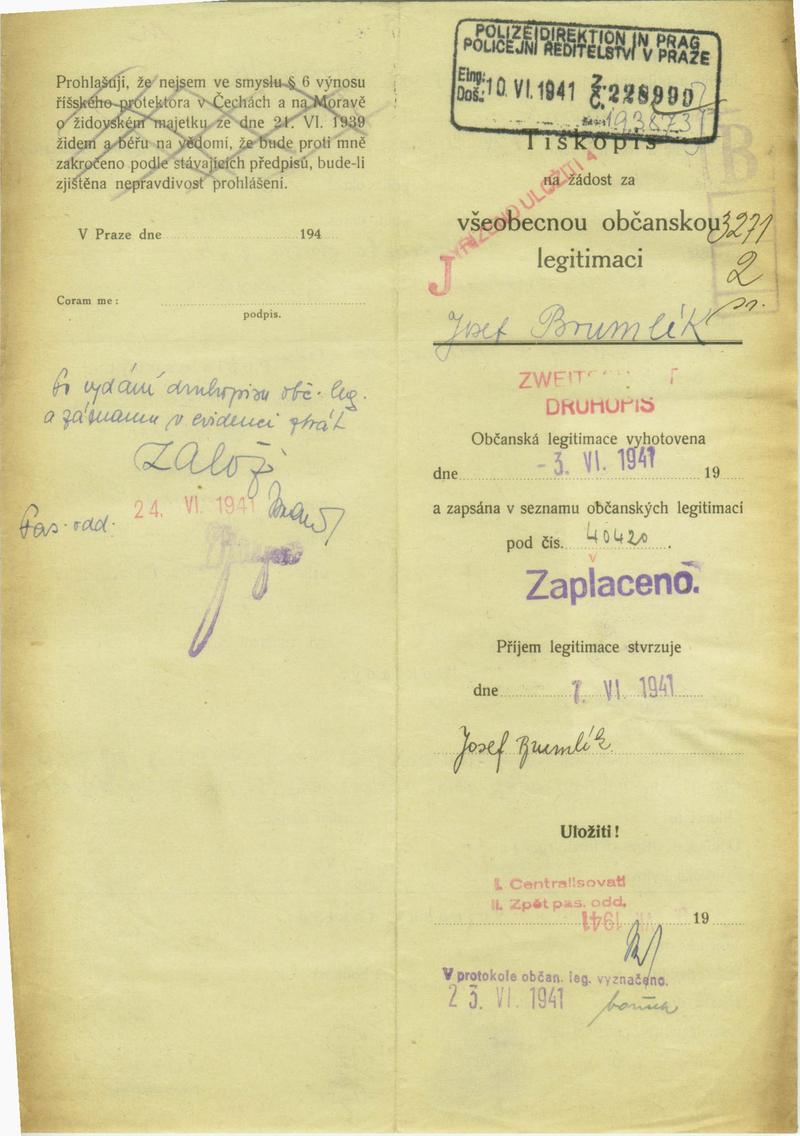 Prohlašuji, že nejsem ve smyslu § 6 výnosu
říšského protektora v Čechách a na Moravě
o židovském majetku ze dne 21. VI. 1939
židem a béřu na vědomí, že bude proti mně
zakročeno podle stávajících předpisů, bude-li
zjištěna nepravdivost prohlášení.
V Praze dne 194
Coram me:
podpis.
Po vydání druhopisu obč. leg.
a záznamu v evidenci ztrát
Založ
24. VI. 1941
Pas. odd.
POLIZEIDIREKTION IN PRAG
POLICEJNÍ ŘEDITELSTVÍ V PRAZE
Eing.:
Doš.: 10. VI. 1941 Z. Č. 228990
193873
B
Tiskopis
na žádost za
všeobecnou občanskou
legitimaci
3271
2
J
ULOŽITI
Josef Brumlík
DRUHOPIS
Občanská legitimace vyhotovena
dne - 3. VI. 1941 19
a zapsána v seznamu občanských legitimací
pod čís. 40420.
Zaplaceno.
Příjem legitimace stvrzuje
dne 7. VI. 1941
Josef Brumlík
Uložiti!
I. Centralisovati
II. Zpět pas. odd.
1941 19
V protokole občan. leg. vyznačeno.
23. VI. 1941